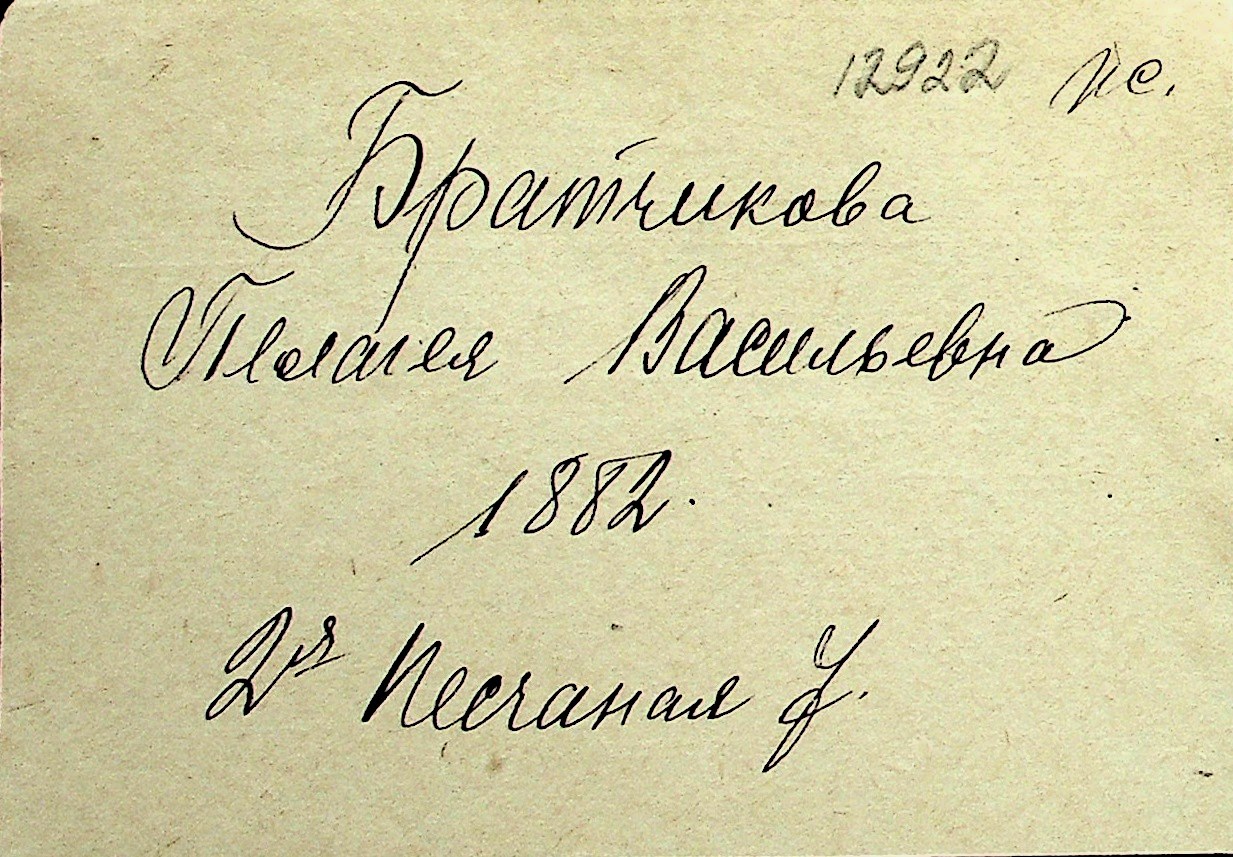 12922 пс.
Братчикова
Пелагея Васильевна
1882.
2я Песчаная У.